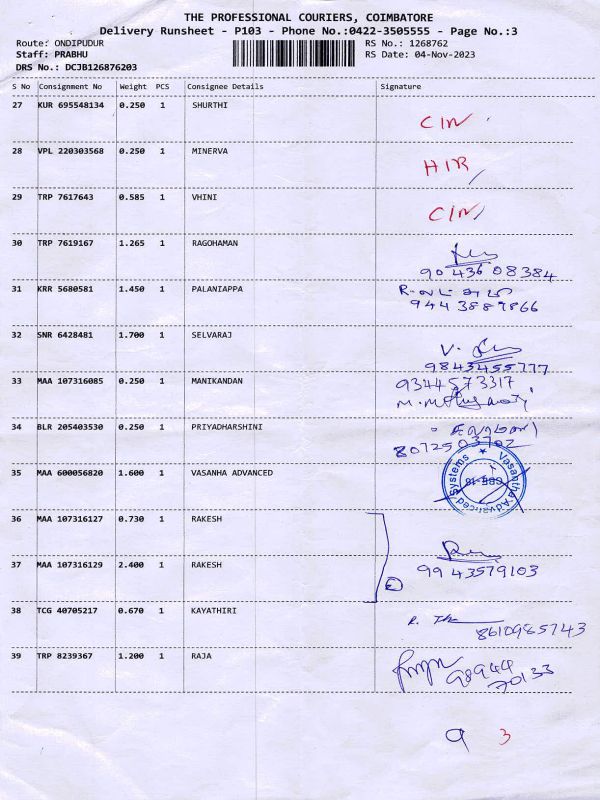 THE PROFESSIONAL COURIERS, COIMBATORE
Delivery Runsheet - P103 - Phone No.:0422-3505555 - Page No.:3
Route: ONDIPUDUR
RS No.: 1268762
Staff: PRABHU
RS Date: 04-Nov-2023
DRS No.: DCJB126876203
S No Consignment No Weight PCS Consignee Details Signature
27 KUR 695548134 0.250 1 SHURTHI
CIN
28 VPL 220303568 0.250 1 MINERVA
HIR
29 TRP 7617643 0.585 1 VHINI
CIN
30 TRP 7619167 1.265 1 RAGOHAMAN
90436 08384
31 KRR 5680581 1.450 1 PALANIAPPA
9443889866
32 SNR 6428481 1.700 1 SELVARAJ
9843455777
33 MAA 107316085 0.250 1 MANIKANDAN
9344573317
34 BLR 205403530 0.250 1 PRIYADHARSHINI
8072503702
35 MAA 600056820 1.600 1 VASANHA ADVANCED
Vasantha Advanced Systems
CBE-18
36 MAA 107316127 0.730 1 RAKESH
37 MAA 107316129 2.400 1 RAKESH
2
9943579103
38 TCG 40705217 0.670 1 KAYATHIRI
8610985743
39 TRP 8239367 1.200 1 RAJA
98944
70133
9 3